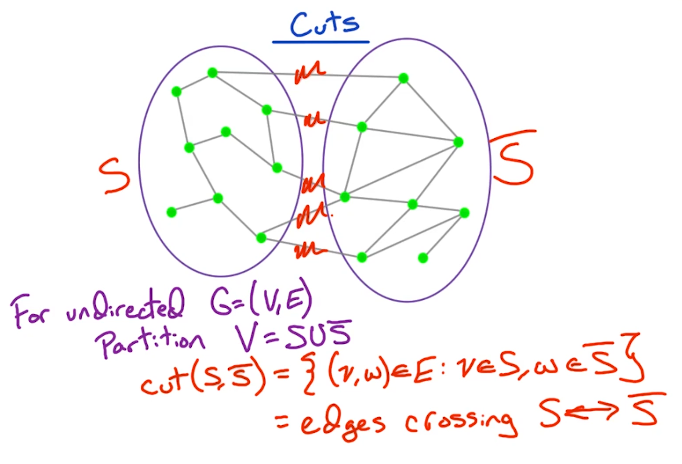 Cuts
S
S̅
For undirected G=(V,E)
Partition V=S∪S̅
cut(S,S̅) = {(v,w)∈E: v∈S, w∈S̅}
= edges crossing S↔S̅